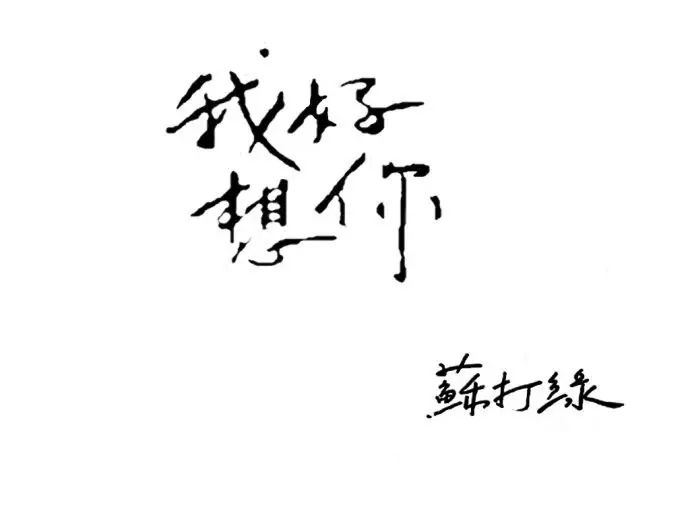 我好
想你
蘇打綠